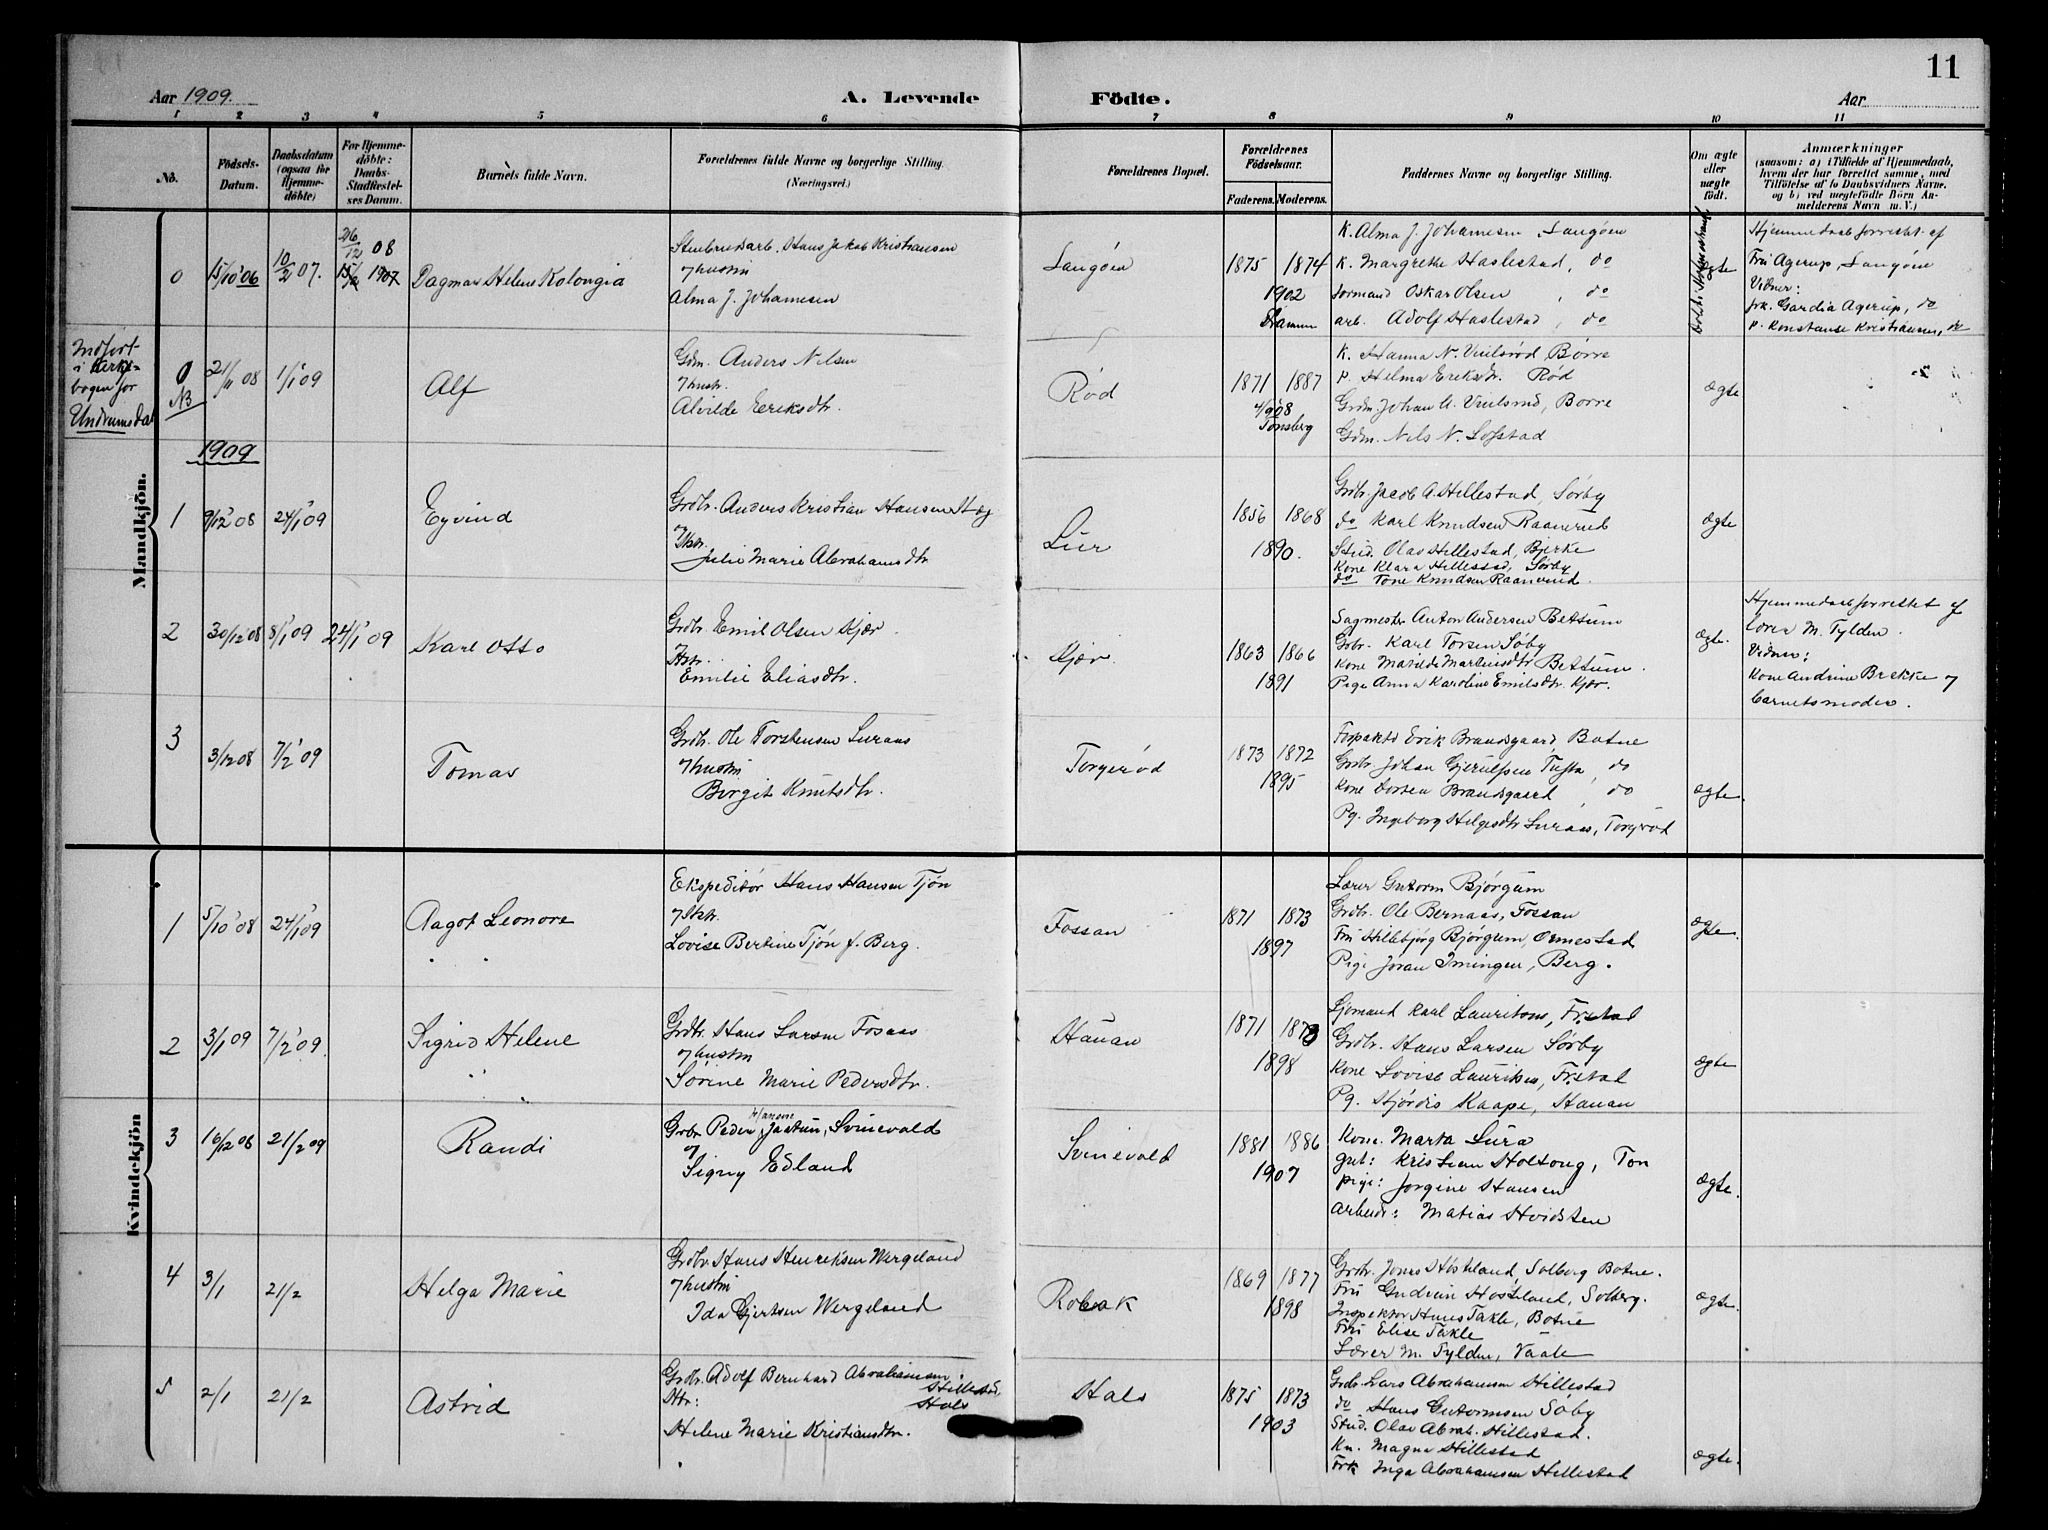 11
Aar 1909.
A. Levende Födte.
Aar
1 2 3 4 5 6 7 8 9 10 11
No.
Födsels-Datum.
Daabsdatum (ogsaa for Hjemme-döbte)
For Hjemme-döbte: Daabs-Stadfæstel-ses Datum.
Barnets fulde Navn.
Forældrenes fulde Navne og borgerlige Stilling. (Næringsvei.)
Forældrenes Bopæl.
Forældrenes Födselsaar.
Faderens. Moderens.
Faddernes Navne og borgerlige Stilling.
Om ægte eller uægte födt.
Anmærkninger
(saasom: a) i Tilfælde af Hjemmedaab,
hvem der har forrettet samme, med
Tilföielse af to Daabsvidners Navne.
og b) ved uægtefödte Börn An-
melderens Navn m. V.)
Mandkjön.
0
15/10 06
10/2 07.
26/12 08
1907
Dagmar Helene Kolongia
Stenbrudsarb. Hans Jakob Kristiansen
og hustru
Alma J. Johannesen
Langøen
1875 1874
1902
Drammen
K. Alma J. Johannesen Langøen
K. Margrethe Haslestad, do
Formand Oskar Olsen, do
arb. Adolf Haslestad, do
ægte
Hjemmedaab forrettet af
Fru Agerup, Langøen
Vidner:
frk. Gardia Agerup, do
p. Konstanse Kristiansen, do
Indført
i Kirke-
bogen for
Undrumsdal
0
NB
21/11 08
1/1 09
Alf
Gdm. Anders Nilsen
og hustr.
Alvilde Eriksdtr.
Rød
1871 1887
4/9 08
Tønsberg
K. Hanna N. Viulsrød Børre
p. Helma Eriksdr. Rød
Grdm. Johan A. Viulsrød, Borre
Gdm. Nils N. Lofstad
ægte
1909
1
9/12 08
24/1 09
Eyvind
Grdbr. Anders Kristian Hansen Haug
og
Hstr.
Julie Marie Abrahamsdtr
Lur
1856 1868
1890.
Grdbr. Jacob A. Hillestad, Sørby
do Karl Knudsen Raanerud
Stud. Olav Hillestad, Bjerke
Kone Klara Hillestad, Sørby
do Tone Knudsen Raanerud.
ægte
2
30/12 08
8/1 09
24/1 09
Karl Otto
Grdbr. Emil Olsen Kjær.
Hstr.
Emilie Eliasdtr.
Kjær.
1863 1866
1891
Sagmester Anton Andersen Bettum
Grbr. Karl Torsen Søby
Kone Matilde Martinsdtr Bettum.
Pige Anna Karoline Emilsdtr. Kjær.
ægte.
Hjemmedaab forrettet af
lærer M. Tylden.
Vidner:
Kone Andrine Brekke og
barnets moder.
3
3/12 08
7/2 09
Tomas
Grdbr. Ole Torstensen Luraas
og hustru
Birgit Knutsdtr.
Torgerød
1873 1872
1895
Forpakter Erik Brandsgaard Botne
Grdbr. Johan Gjerulfsen Tufta, do
Kone Dortea Brandsgaard, do
Pg. Ingeborg Helgesdtr Luraas, Torgrød
ægte.
Kvindekjön
1
5/10 08
24/1 09
Aagot Leonore
Ekspeditør Hans Hansen Tjøn
og Hstr.
Lovise Bertine Tjøn f. Berg.
Fossan
1871 1873
1897
Lærer Gutorm Bjørgum
Grdbr. Ole Bernaas, Fossan
Fru Hillebjørg Bjørgum, Ormestad
Pige Joran Imingen, Berg.
ægte.
2
3/1 09
7/2 09.
Sigrid Helene
Grdbr. Hans Larsen Fosaas
og hustru
Sørine Marie Pedersdtr.
Hauan
1871 1873
1898
Sjømand Karl Lauritsen, Frestad
Grdbr. Hans Larsen Sørby
Kone Lovise Lauritsen, Frestad
Pg. Hjørdis Kaape, Hauan
ægte
3
16/12 08
21/2 09
Randi
Hansen
Grbr Peder Jaatun, Svinevold
og
Signy Edland
Svinevold
1881 1886
1907
Kone. Marta Lura
gut: Kristian Holtung, Ton
pige: Jorgine Hansen
Arbeider: Matias Hvidsten
ægte.
4
3/1
21/2
Helga Marie
Grdbr. Hans Henriksen Wergeland
og hustru
Ida Gjertsen Wergeland
Robak
1869 1877
1898
Grdbr. Jonas Høstland, Solberg Botne.
Fru Gudrun Høstland, Solberg.
Inspektør Hans Takle, Botne
Fru Elise Takle
Lærer M. Tylden, Vaale
ægte.
5
2/1
21/2
Astrid
Grdbr. Adolf Bernhard Abrahamsen
Hillestad,
Hstr: Hals
Helene Marie Kristiansdtr.
Hals
1875 1873
1903
Grdbr. Lars Abrahamsen Hillestad
do Hans Gutormsen Søby
Stud. Olav Abrah. Hillestad.
Kn. Magna Hillestad
Frk Inga Abrahamsen Hillestad
ægte.